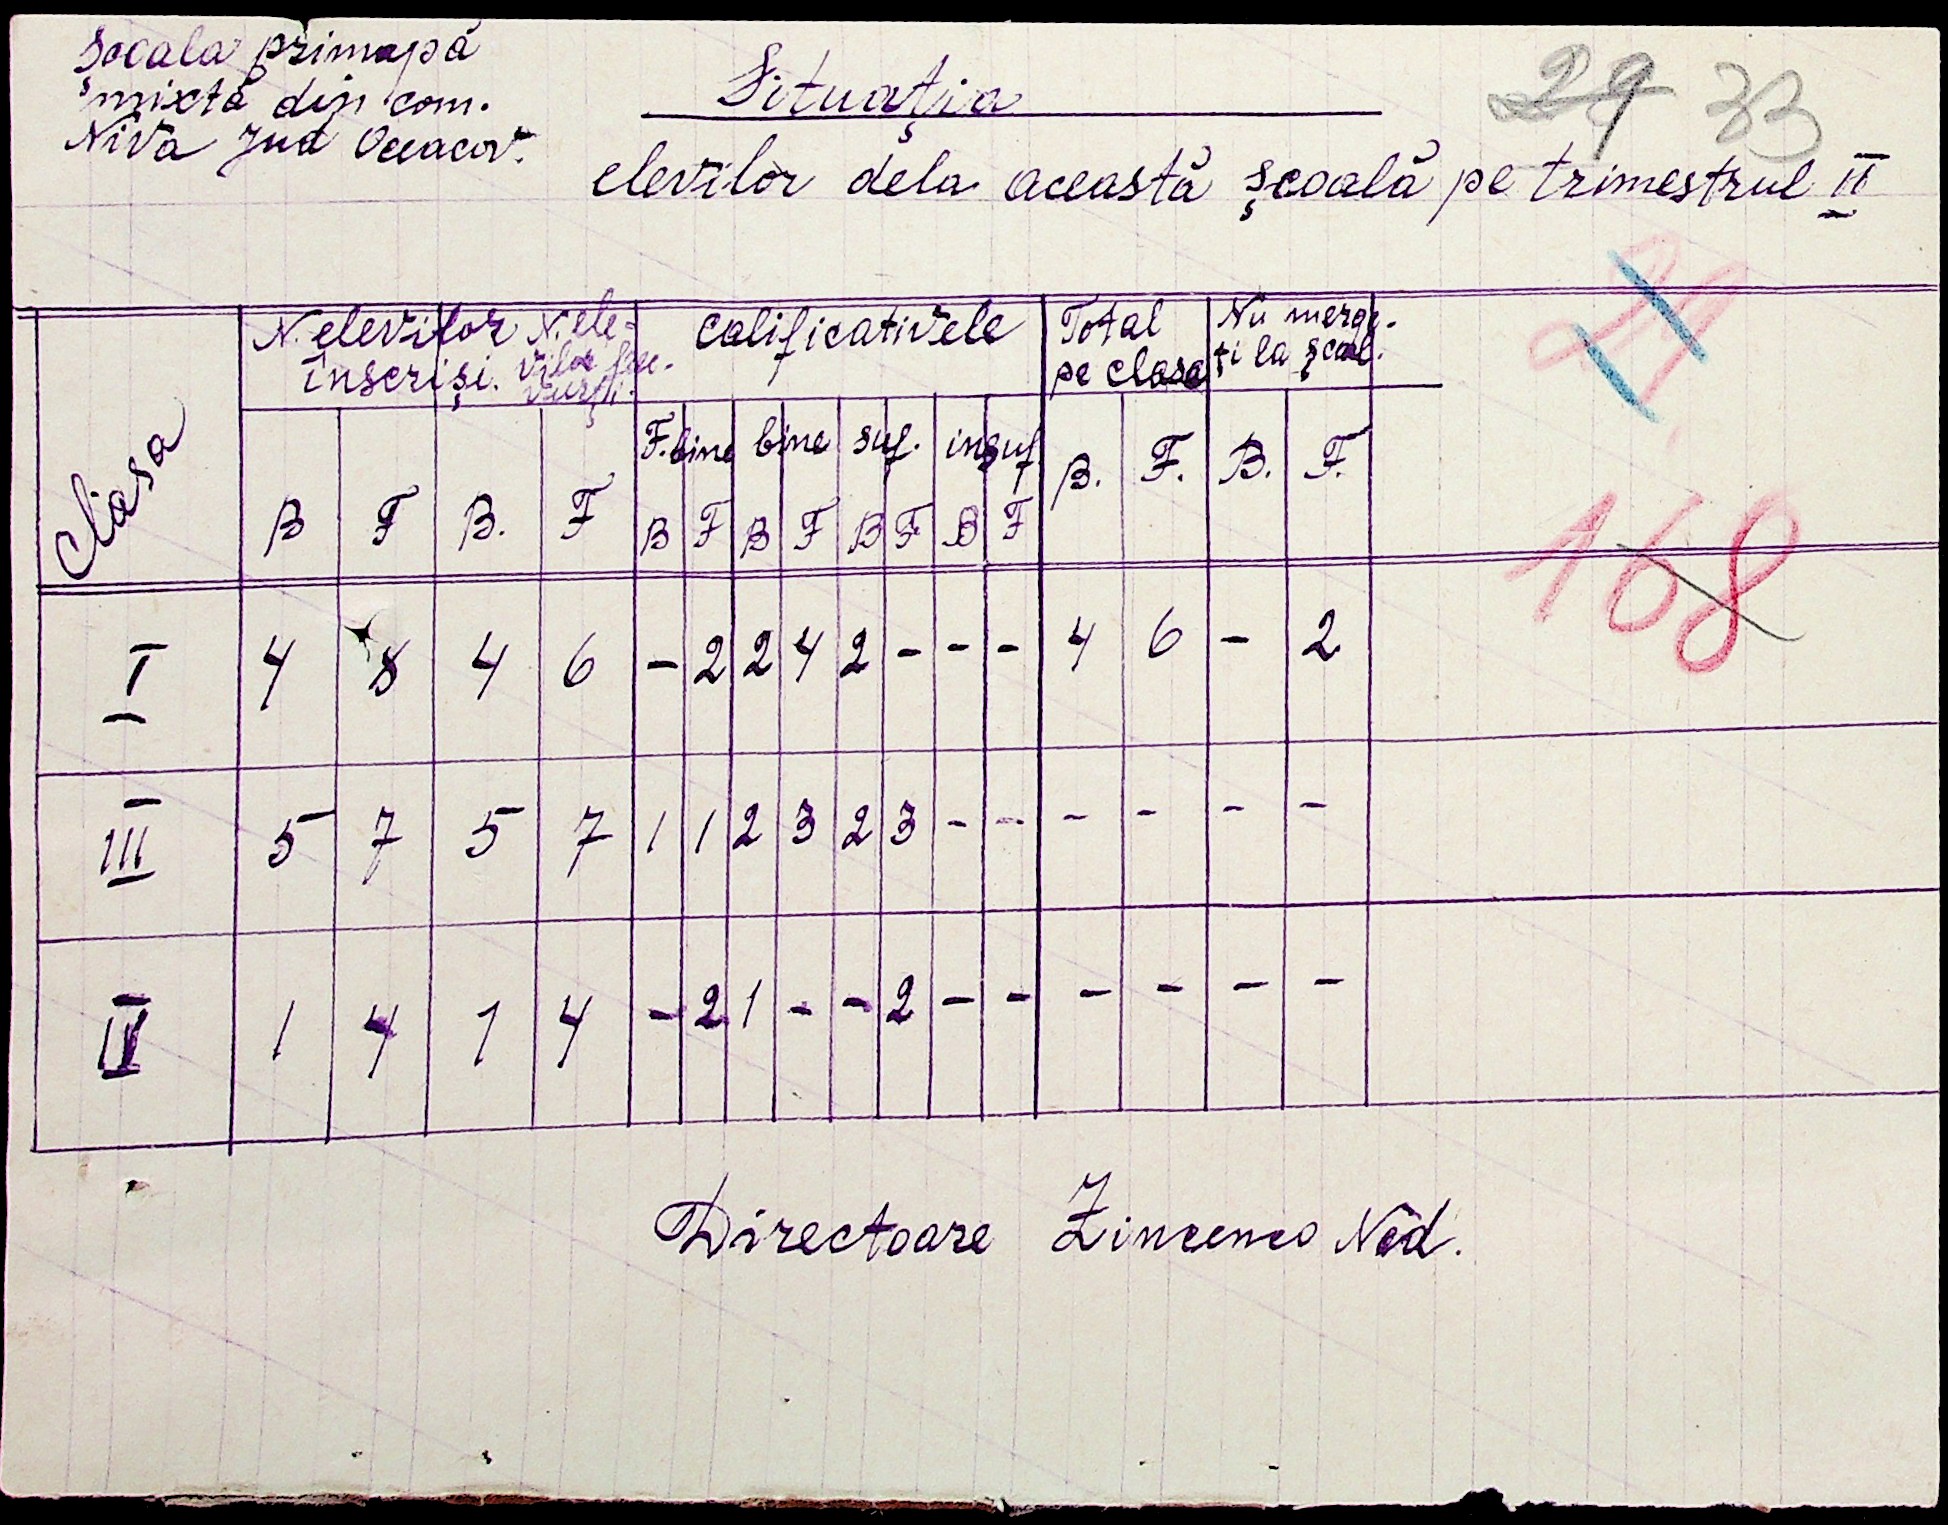 Șocala primapă
mixtă din com.
Niva Jud Oceacov.
29 33
Situația
elevilor dela această școală pe trimestrul II
29
168
Clasa
N. elevilor
inscriși.
N. ele-
vilor frec-
vurți.
calificativele
Total
pe clasa
Nu merge.
ți la școal.
F. bine bine suf. insuf
B F B. F B F B F B F B F B. F. B. F.
I 4 8 4 6 - 2 2 4 2 - - - 4 6 - 2
III 5 7 5 7 1 1 2 3 2 3 - - - - - -
IV 1 4 1 4 - 2 1 - - 2 - - - - - -
Directoare Zincenco Nad.